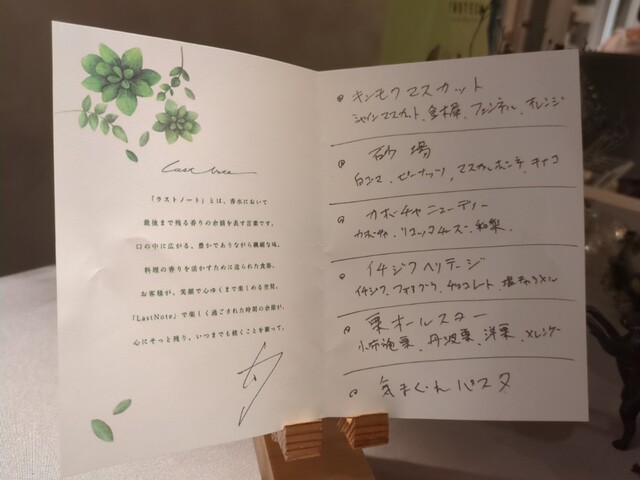 Last tree
「ラストノート」とは、香水において
最後まで残る香りの余韻を表す言葉です。
口の中に広がる、豊かでありながら繊細な味。
料理の香りを活かすために造られた食器。
お客様が、笑顔で心ゆくまで楽しめる空間。
「LastNote」で楽しく過ごされた時間の余韻が、
心にそっと残り、いつまでも続くことを願って。
キンモクマスカット
シャインマスカット、金木犀、フェンネル、オレンジ
砂場
白ゴマ、ピーナッツ、マスカルポーネ、キナコ
カボチャニューディー
カボチャ、リコッタチーズ、和梨、
イチジクヘリテージ
イチジク、フォアグラ、チョコレート、塩キャラメル
栗オールスター
小布施栗、丹波栗、洋栗、メレンゲ
気まぐれパスタ